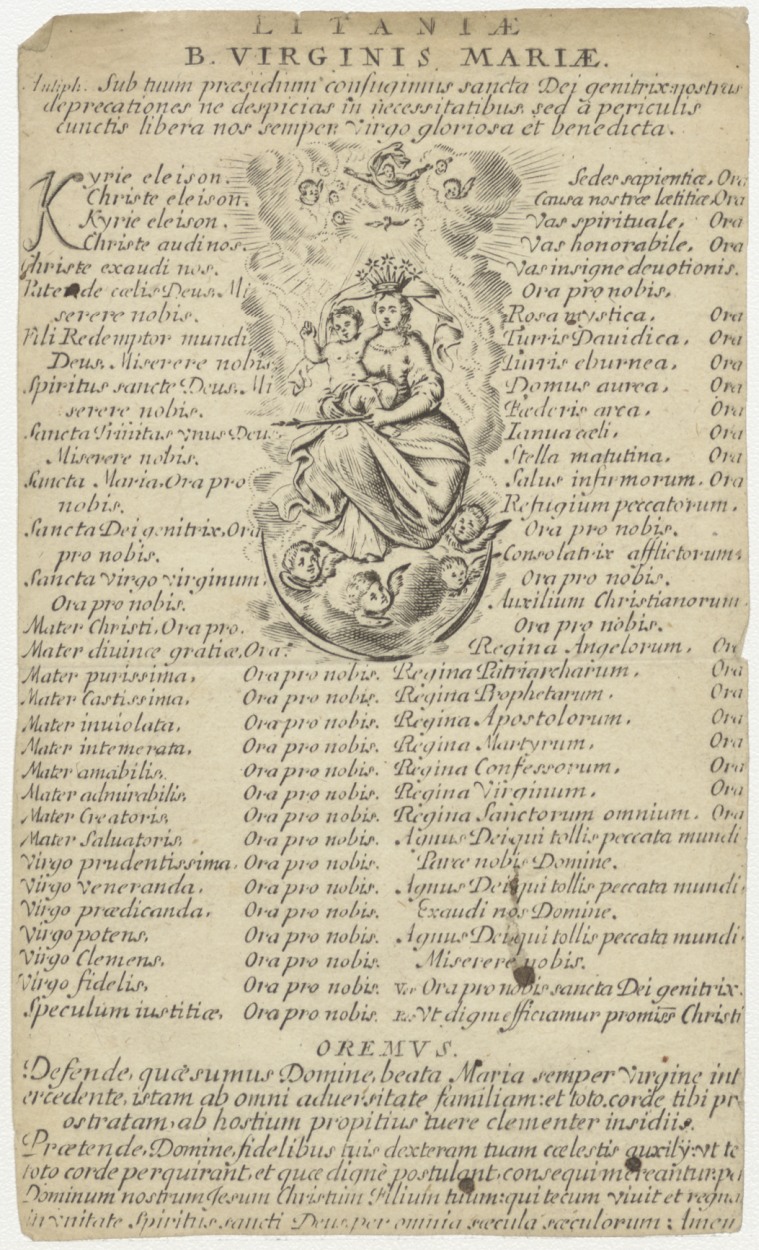 LITANIÆ
B. VIRGINIS MARIÆ.
Antiph. Sub tuum præsidium confugimus sancta Dei genitrix: nostras
deprecationes ne despicias in necessitatibus, sed à periculis
cunctis libera nos semper, Virgo gloriosa et benedicta.
Kyrie eleison.
Christe eleison.
Kyrie eleison.
Christe audi nos.
Christe exaudi nos.
Pater de cœlis Deus. Mi
serere nobis.
Fili Redemptor mundi
Deus, Miserere nobis.
Spiritus sancte Deus. Mi
serere nobis.
Sancta Trinitas vnus Deus
Miserere nobis.
Sancta Maria. Ora pro
nobis.
Sancta Dei genitrix, Ora
pro nobis.
Sancta virgo virginum,
Ora pro nobis.
Mater Christi, Ora pro.
Mater diuinæ gratiæ, Ora.
Mater purissima, Ora pro nobis.
Mater Castissima, Ora pro nobis.
Mater inuiolata, Ora pro nobis.
Mater intemerata, Ora pro nobis.
Mater amabilis. Ora pro nobis.
Mater admirabilis, Ora pro nobis.
Mater Creatoris, Ora pro nobis.
Mater Saluatoris, Ora pro nobis.
Virgo prudentissima, Ora pro nobis.
Virgo veneranda, Ora pro nobis.
Virgo prædicanda, Ora pro nobis.
Virgo potens, Ora pro nobis.
Virgo Clemens, Ora pro nobis.
Virgo fidelis, Ora pro nobis.
Speculum iustitiæ, Ora pro nobis.
Sedes sapientiæ, Ora
Causa nostræ lætitiæ, Ora
Vas spirituale, Ora
Vas honorabile, Ora
Vas insigne deuotionis.
Ora pro nobis,
Rosa mystica, Ora
Turris Dauidica, Ora
Turris eburnea, Ora
Domus aurea, Ora
Fœderis arca, Ora
Ianua cœli, Ora
Stella matutina, Ora
Salus infirmorum, Ora
Refugium peccatorum,
Ora pro nobis.
Consolatrix afflictorum,
Ora pro nobis.
Auxilium Christianorum
Ora pro nobis.
Regina Angelorum, Ora
Regina Patriarcharum, Ora
Regina Prophetarum, Ora
Regina Apostolorum, Ora
Regina Martyrum, Ora
Regina Confessorum, Ora
Regina Virginum, Ora
Regina Sanctorum omnium, Ora
Agnus Dei qui tollis peccata mundi
Parce nobis Domine.
Agnus Dei qui tollis peccata mundi,
Exaudi nos Domine.
Agnus Dei qui tollis peccata mundi
Miserere nobis.
Ora pro nobis sancta Dei genitrix.
Vt digni efficiamur promiss Christi
OREMVS.
Defende, quæsumus Domine, beata Maria semper Virgine int
ercedente, istam ab omni aduersitate familiam: et toto corde tibi pr
ostratam, ab hostium propitius tuere clementer insidiis.
Prætende, Domine, fidelibus tuis dexteram tuam cœlestis auxilij: vt te
toto corde perquirant, et quæ dignè postulant, consequi mereantur. per
Dominum nostrum Jesum Christum Filium tuum: qui tecum viuit et regna
in vnitate Spiritus sancti Deus, per omnia sæcula sæculorum: Amen